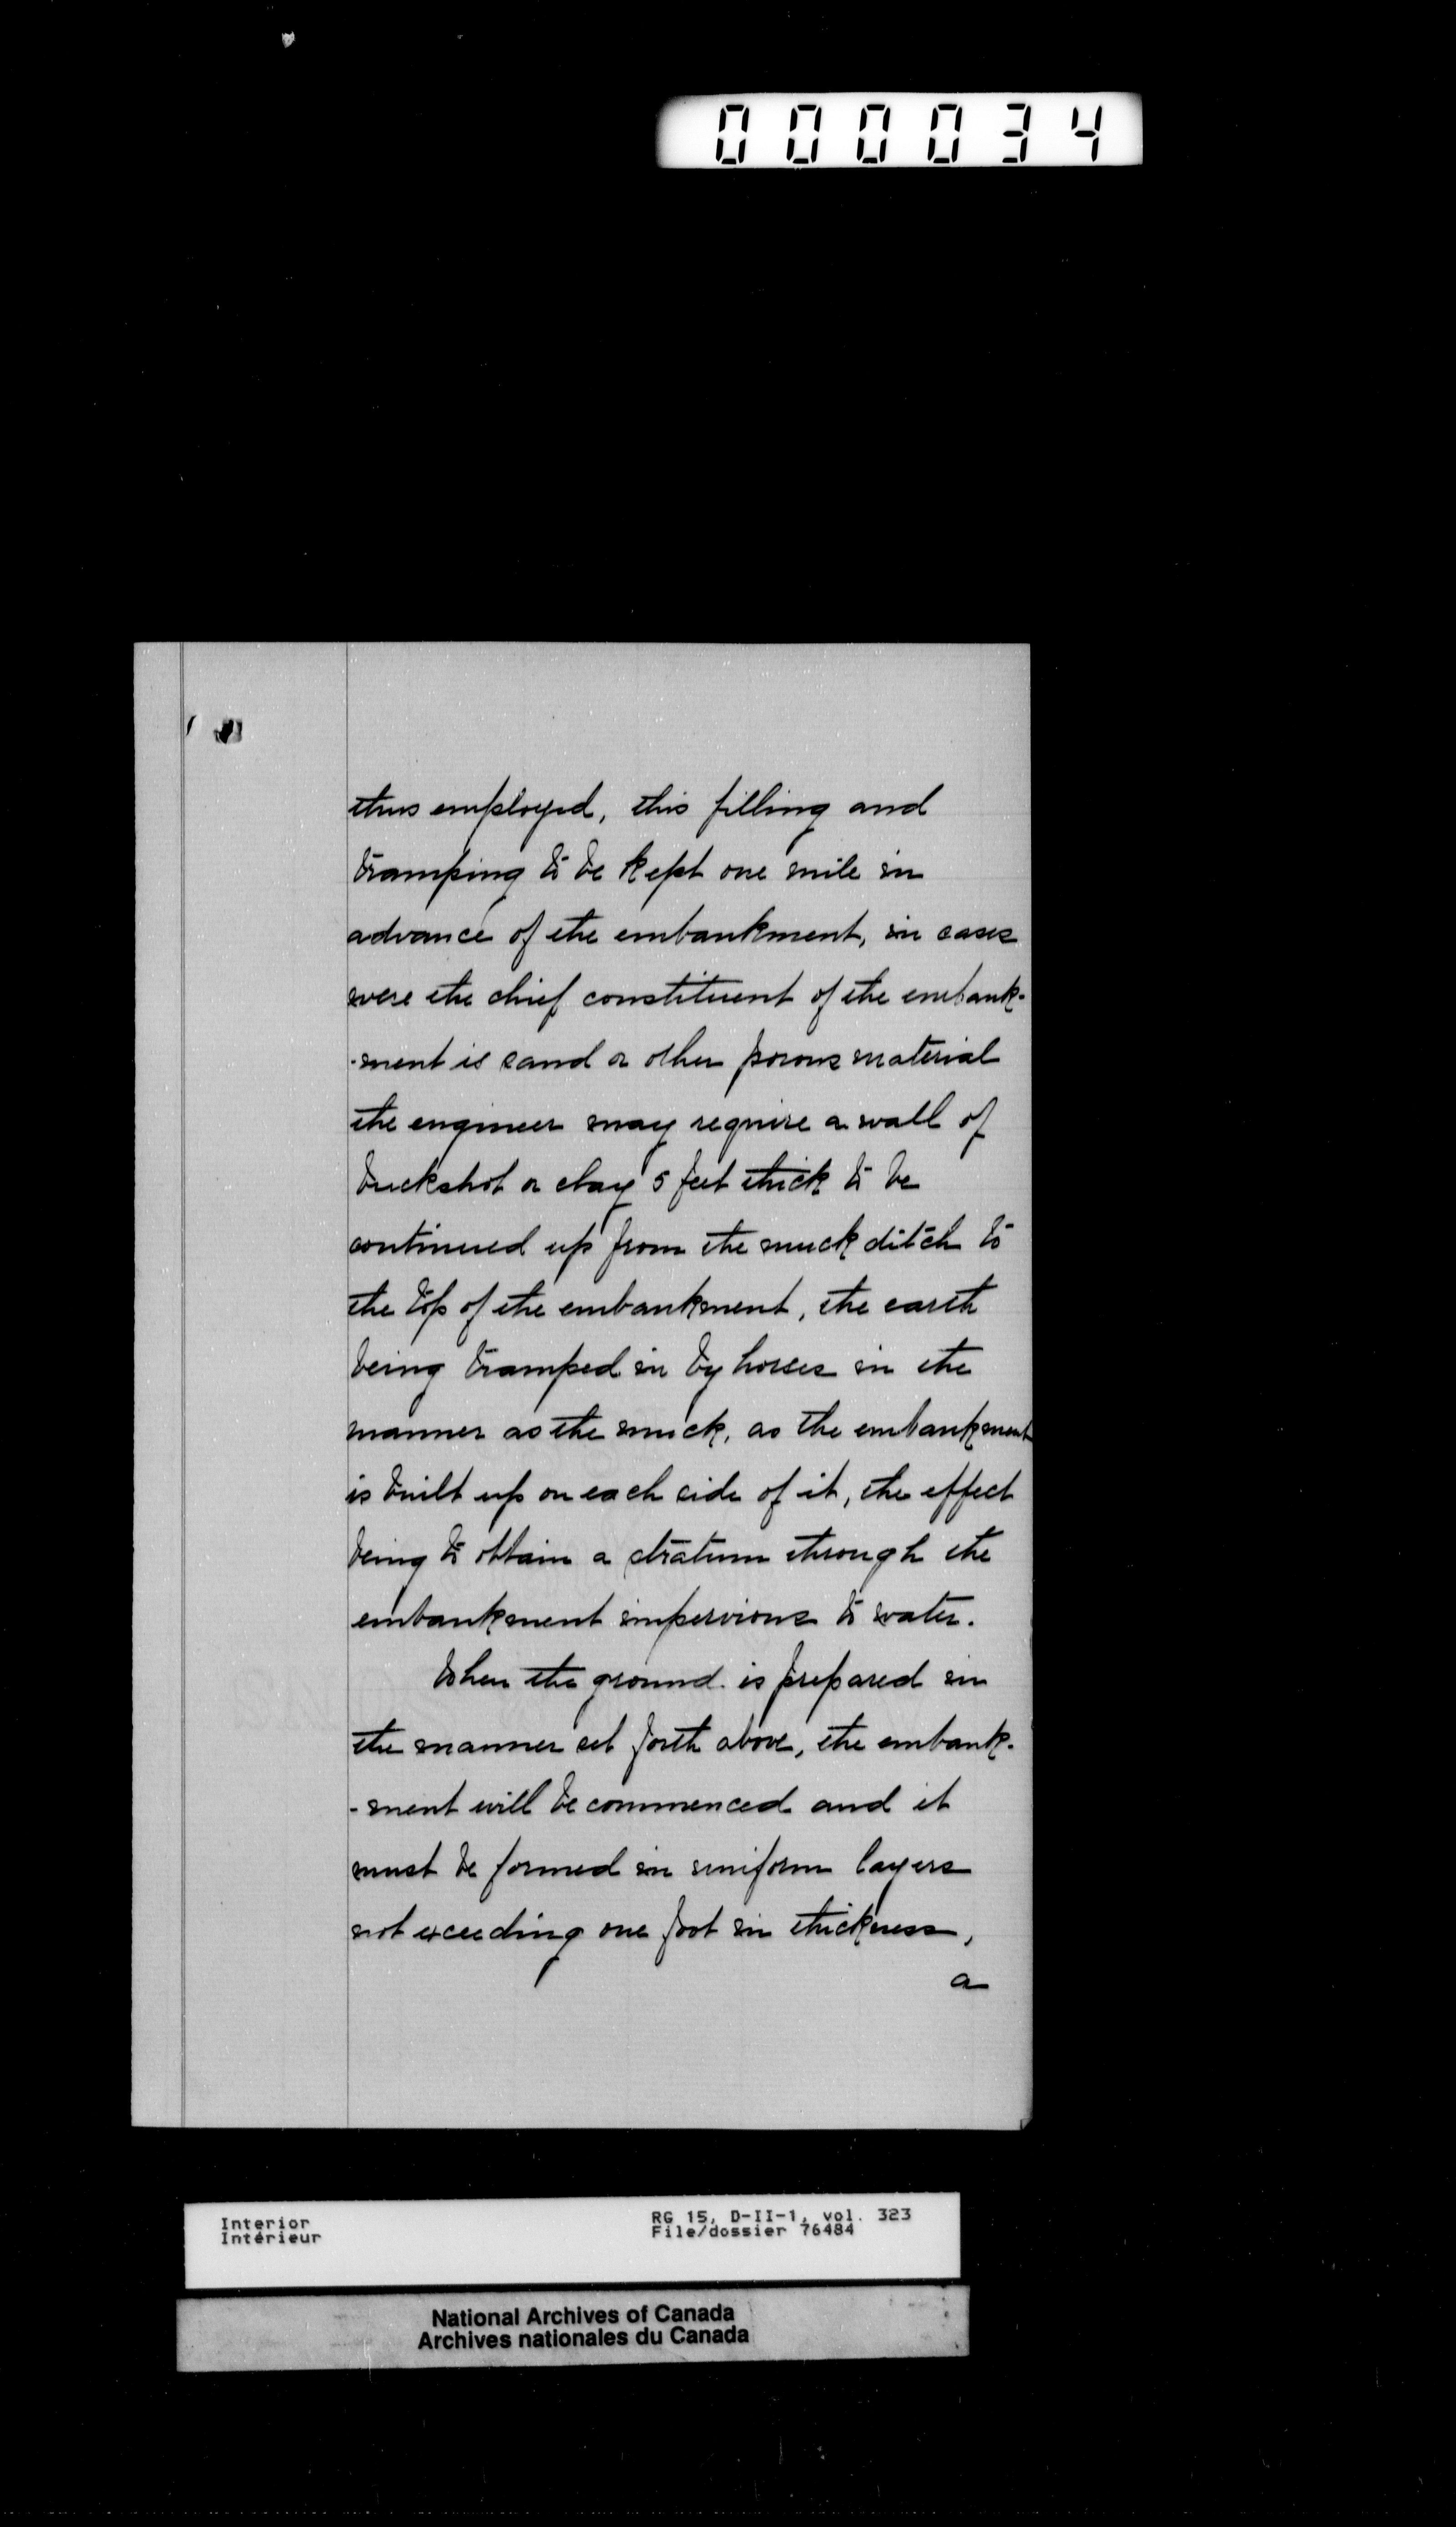 000034
thus employed, this filling and
tramping to be kept one mile in
advance of the embankment, in cases
were the chief constituent of the embank-
-ment is sand or other porous material
the engineer may require a wall of
buckshot or clay 5 feet thick to be
continued up from the muck ditch to
the top of the embankment, the earth
being tramped in by horses in the
manner as the muck, as the embankment
is built up on each side of it, the effect
being to obtain a stratum through the
embankment impervious to water.
When the ground is prepared in
the manner set forth above, the embank-
-ment will be commenced and it
must be formed in uniform layers
not exceeding one foot in thickness,
a
Interior
Intérieur
RG 15, D-II-1, vol. 323
File/dossier 76484
National Archives of Canada
Archives nationales du Canada